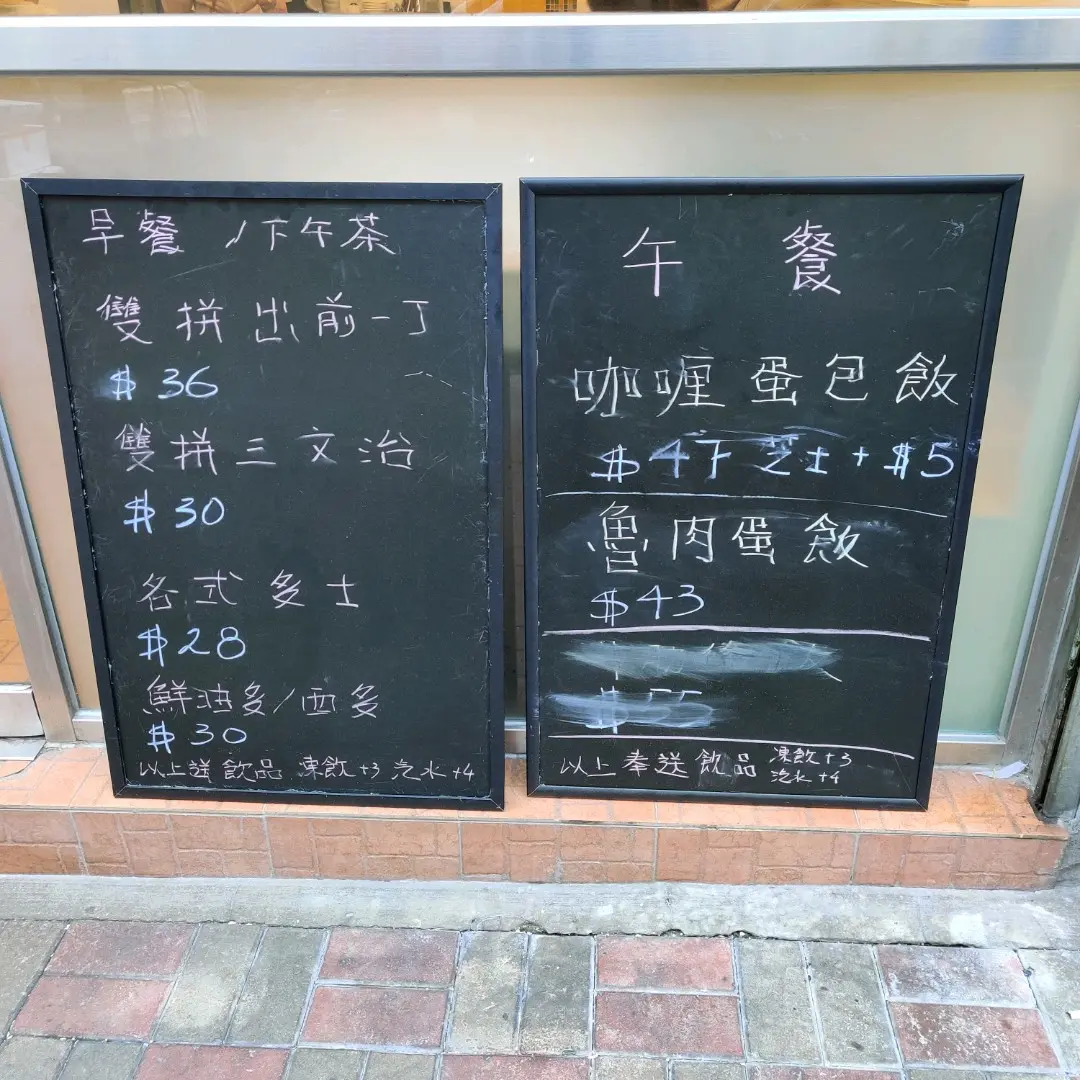 早餐 / 下午茶
雙拼出前一丁
$36
雙拼三文治
$30
各式多士
$28
鮮油多/西多
$30
以上送飲品 凍飲+3 汽水+4
午 餐
咖喱蛋包飯
$47 芝士+$5
魯肉蛋飯
$43
$55
以上奉送飲品 凍飲+3
汽水+4